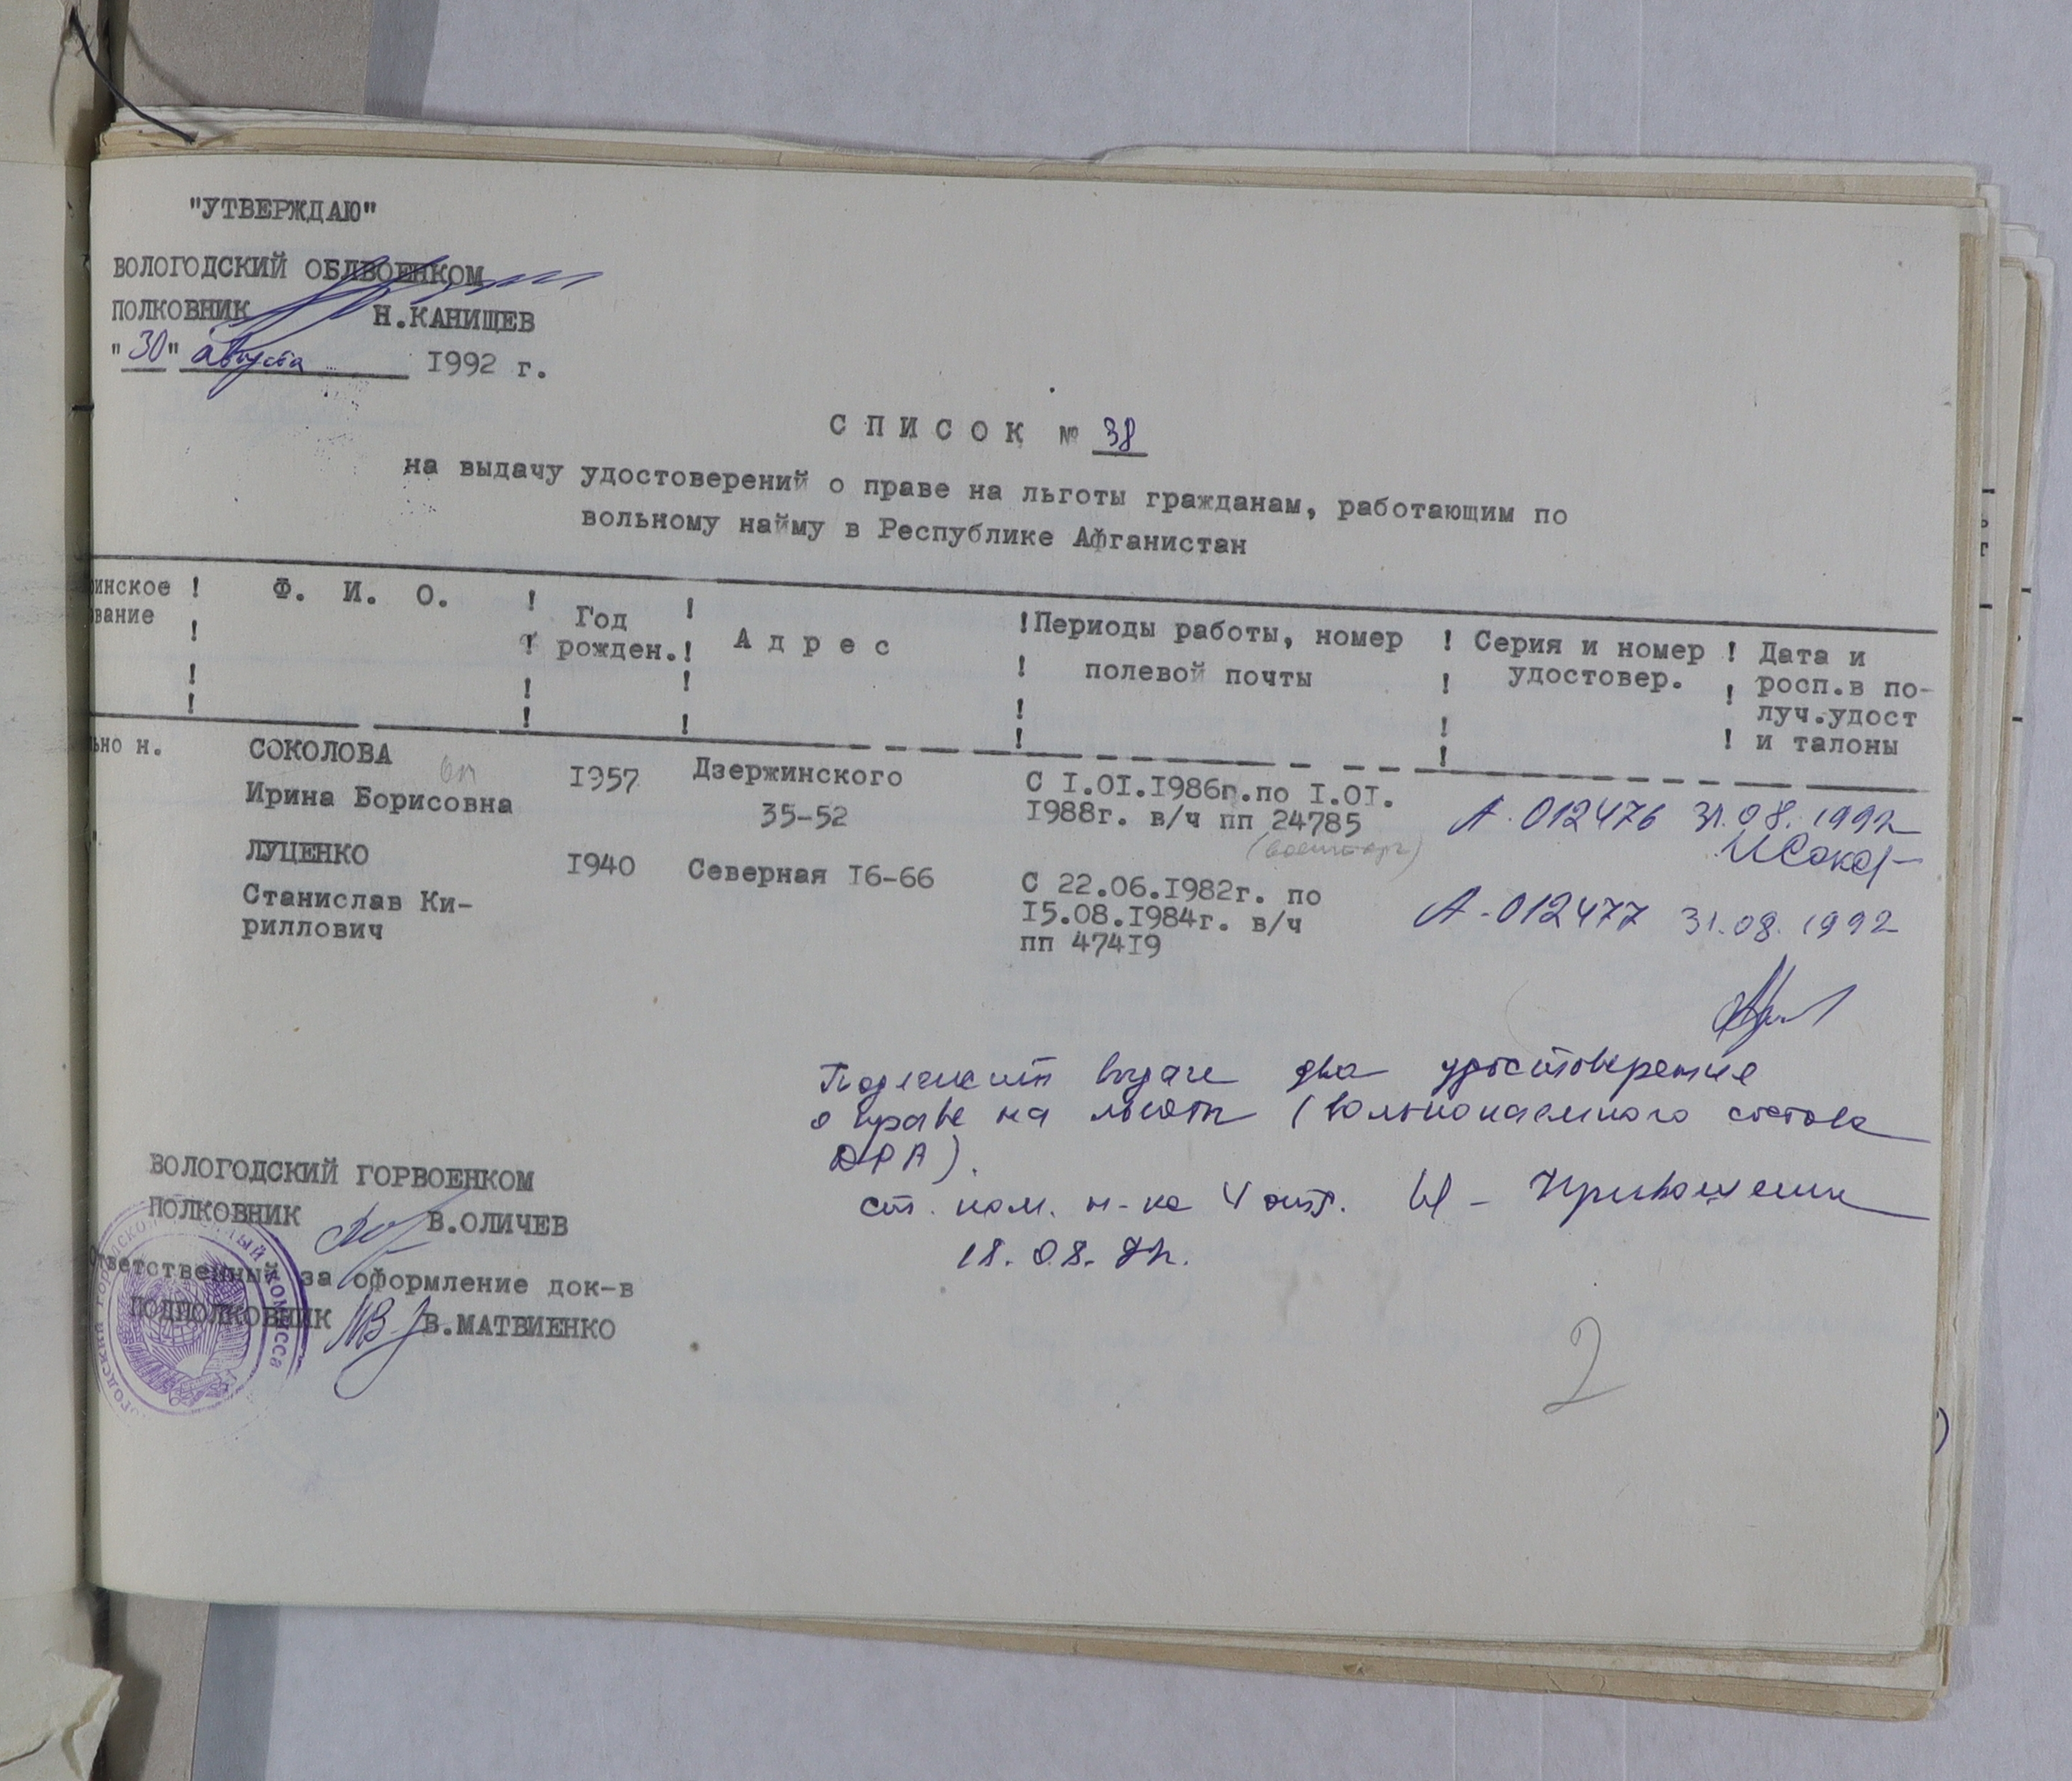 "УТВЕРЖДАЮ"
ВОЛОГОДСКИЙ ОБЛВОЕНКОМ
ПОЛКОВНИК Н.КАНИЩЕВ
"30" августа 1992 г.
СПИСОК № 38
на выдачу удостоверений о праве на льготы гражданам, работающим по
вольному найму в Республике Афганистан
инское ! Ф. И. О. ! Год ! Адрес ! Периоды работы, номер ! Серия и номер ! Дата и
вание ! ! рожден. ! ! полевой почты ! удостовер. ! росп.в по-
луч.удост
и талоны
ьно н. СОКОЛОВА 1957 Дзержинского С I.OI.1986г.по I.OI.
Ирина Борисовна 35-52 1988г. в/ч пп 24785 А-012476 31.08.1992
(военторг) ИСокол
ЛУЦЕНКО 1940 Северная 16-66 С 22.06.1982г. по
Станислав Ки- 15.08.1984г. в/ч А-012477 31.08.1992
риллович пп 47419
Подлежит выдаче два удостоверения
о праве на льготы (вольнонаемного состава
ДРА).
ст. пом. н-ка 4 отд.
18.08.92г.
ВОЛОГОДСКИЙ ГОРВОЕНКОМ
ПОЛКОВНИК В.ОЛИЧЕВ
Ответственный за оформление док-в
ПОДПОЛКОВНИК В.МАТВИЕНКО
2